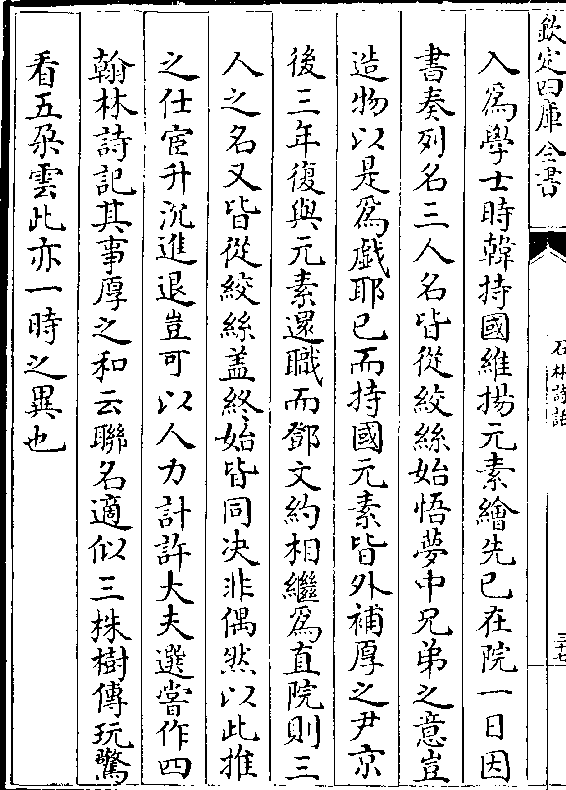 欽定四庫全書
石林詩話
三十七
入爲學士時韓持國維揚元素繪先已在院一日因
書奏列名三人名皆從絞絲始悟夢中兄弟之意豈
造物以是爲戲耶已而持國元素皆外補厚之尹京
後三年復與元素還職而鄧文約相繼爲直院則三
人之名又皆從絞絲盖終始皆同决非偶然以此推
之仕宦升沉進退豈可以人力計許大夫選嘗作四
翰林詩記其事厚之和云聯名適似三株樹傳玩驚
看五朶雲此亦一時之異也